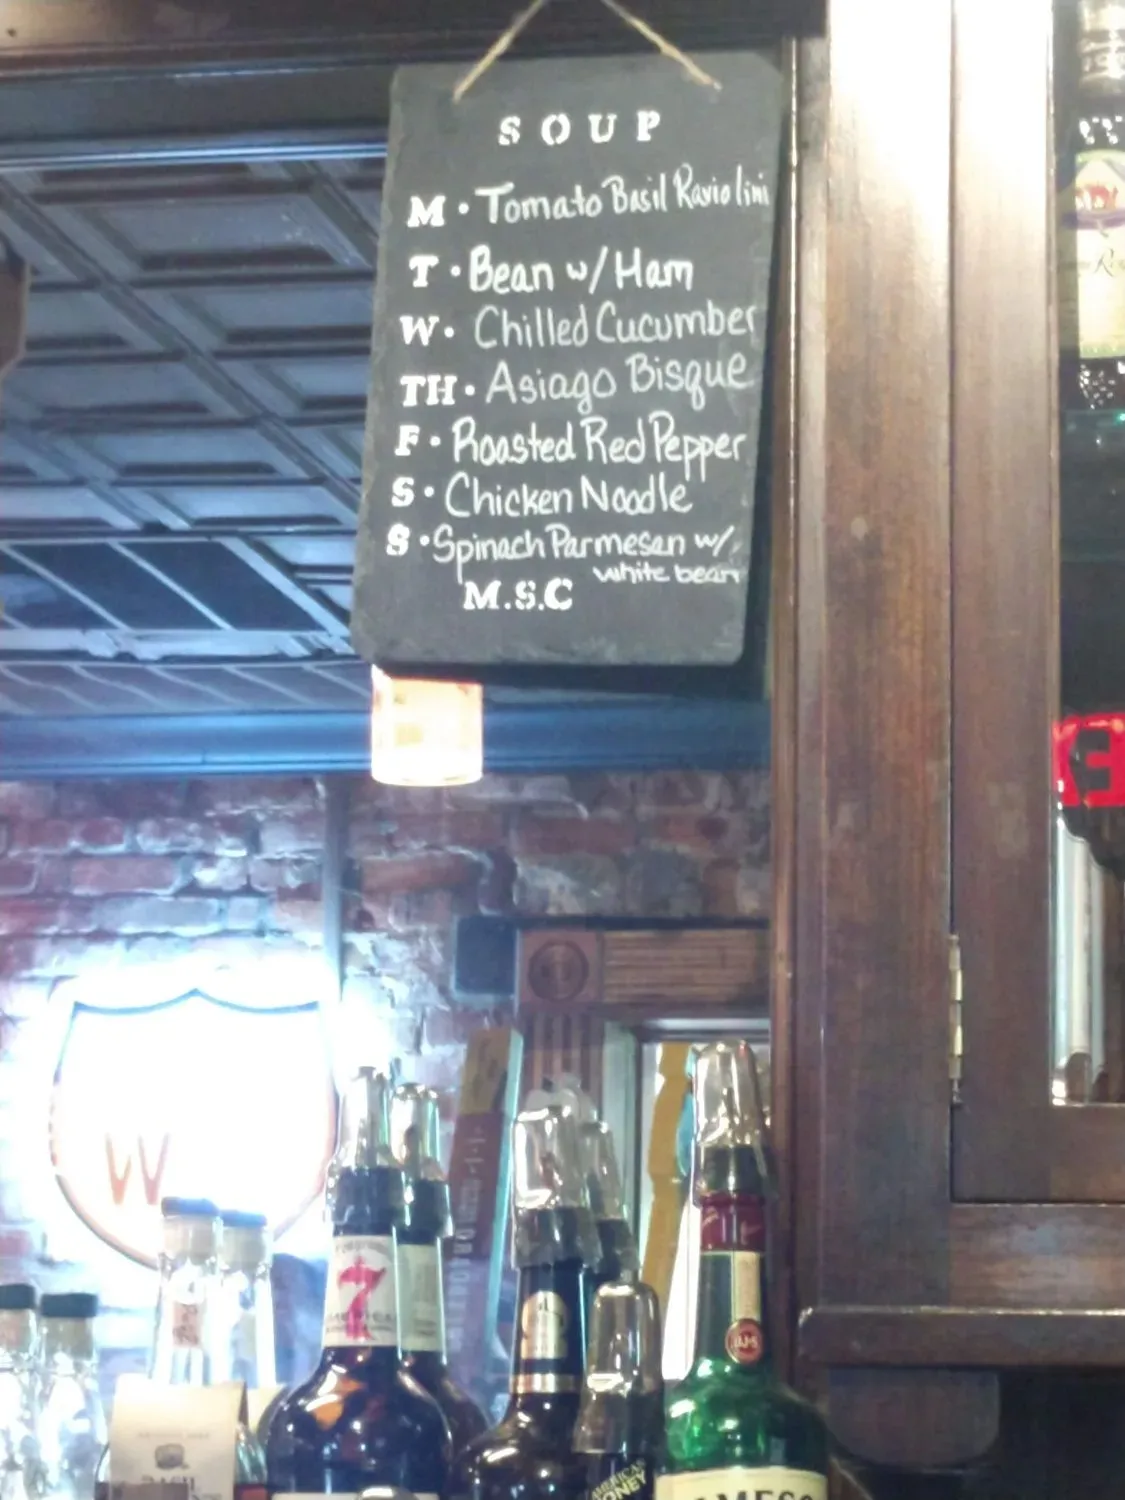 SOUP
M • Tomato Basil Raviolini
T • Bean w/ Ham
W • Chilled Cucumber
TH • Asiago Bisque
F • Roasted Red Pepper
S • Chicken Noodle
S • Spinach Parmesan w/
white bean
M.S.C
W
7
AMERICAN
HONEY